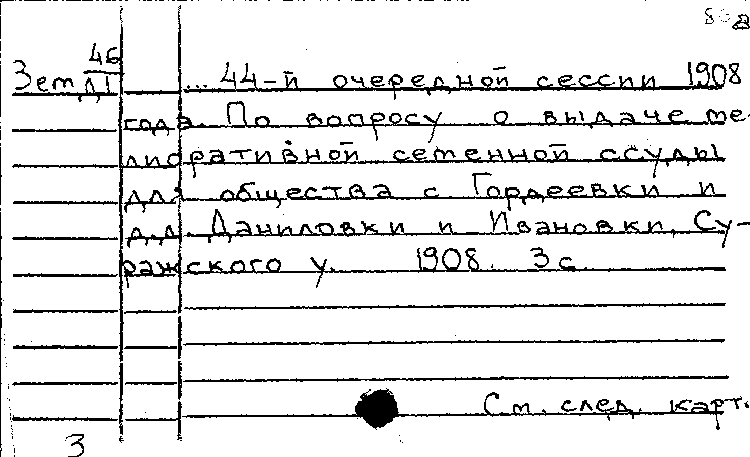 46
Зем Д1 ... 44-й очередной сессии 1908
года. По вопросу о выдаче ме-
лиоративной семенной ссуды
для общества с Гордеевки и
д.д. Даниловки и Ивановки, Су-
ражского у. 1908. 3 с
См. след. карт.
3